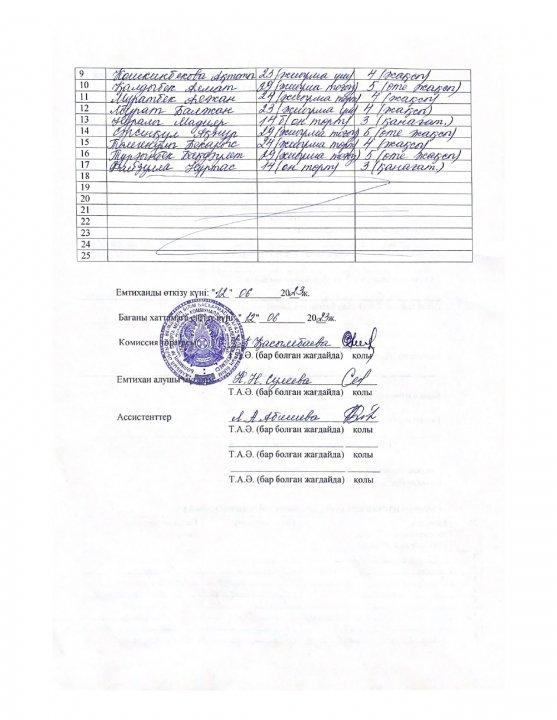 9 Кошкинбекова Ақтоты 23 (жиырма үш) 4 (жақсы)
10 Қалдыбек Алмат 29 (жиырма тоғыз) 5 (өте жақсы)
11 Муратбек Аспан 24 (жиырма төрт) 4 (жақсы)
12 Мұрат Балжан 23 (жиырма үш) 4 (жақсы)
13 Нұралы 14 б (он төрт) 3 (қанағат.)
14 29 (жиырма тоғыз) 5 (өте жақсы)
15 24 (жиырма төрт) 4 (жақсы)
16 29 (жиырма тоғыз) 5 (өте жақсы)
17 Файзулла 14 (он төрт) 3 (қанағат.)
18
19
20
21
22
23
24
25
Емтиханды өткізу күні: "12" 06 2023ж.
Бағаны хаттамаға күні: "12" 06 2023ж.
Комиссия төрағасы
Т.А.Ә. (бар болған жағдайда) қолы
Емтихан алушы Н.Н. Сулеева
Т.А.Ә. (бар болған жағдайда) қолы
Ассистенттер Л.А. Абишева
Т.А.Ә. (бар болған жағдайда) қолы
Т.А.Ә. (бар болған жағдайда) қолы
Т.А.Ә. (бар болған жағдайда) қолы